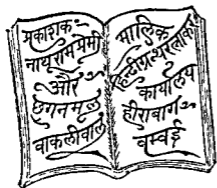 प्रकाशक
नाथूराम प्रेमी
और
छगनमल
वाकलीवाल
मालिक
हिन्दीग्रन्थरत्नाकर
कार्यालय
हीराबाग
बम्बई